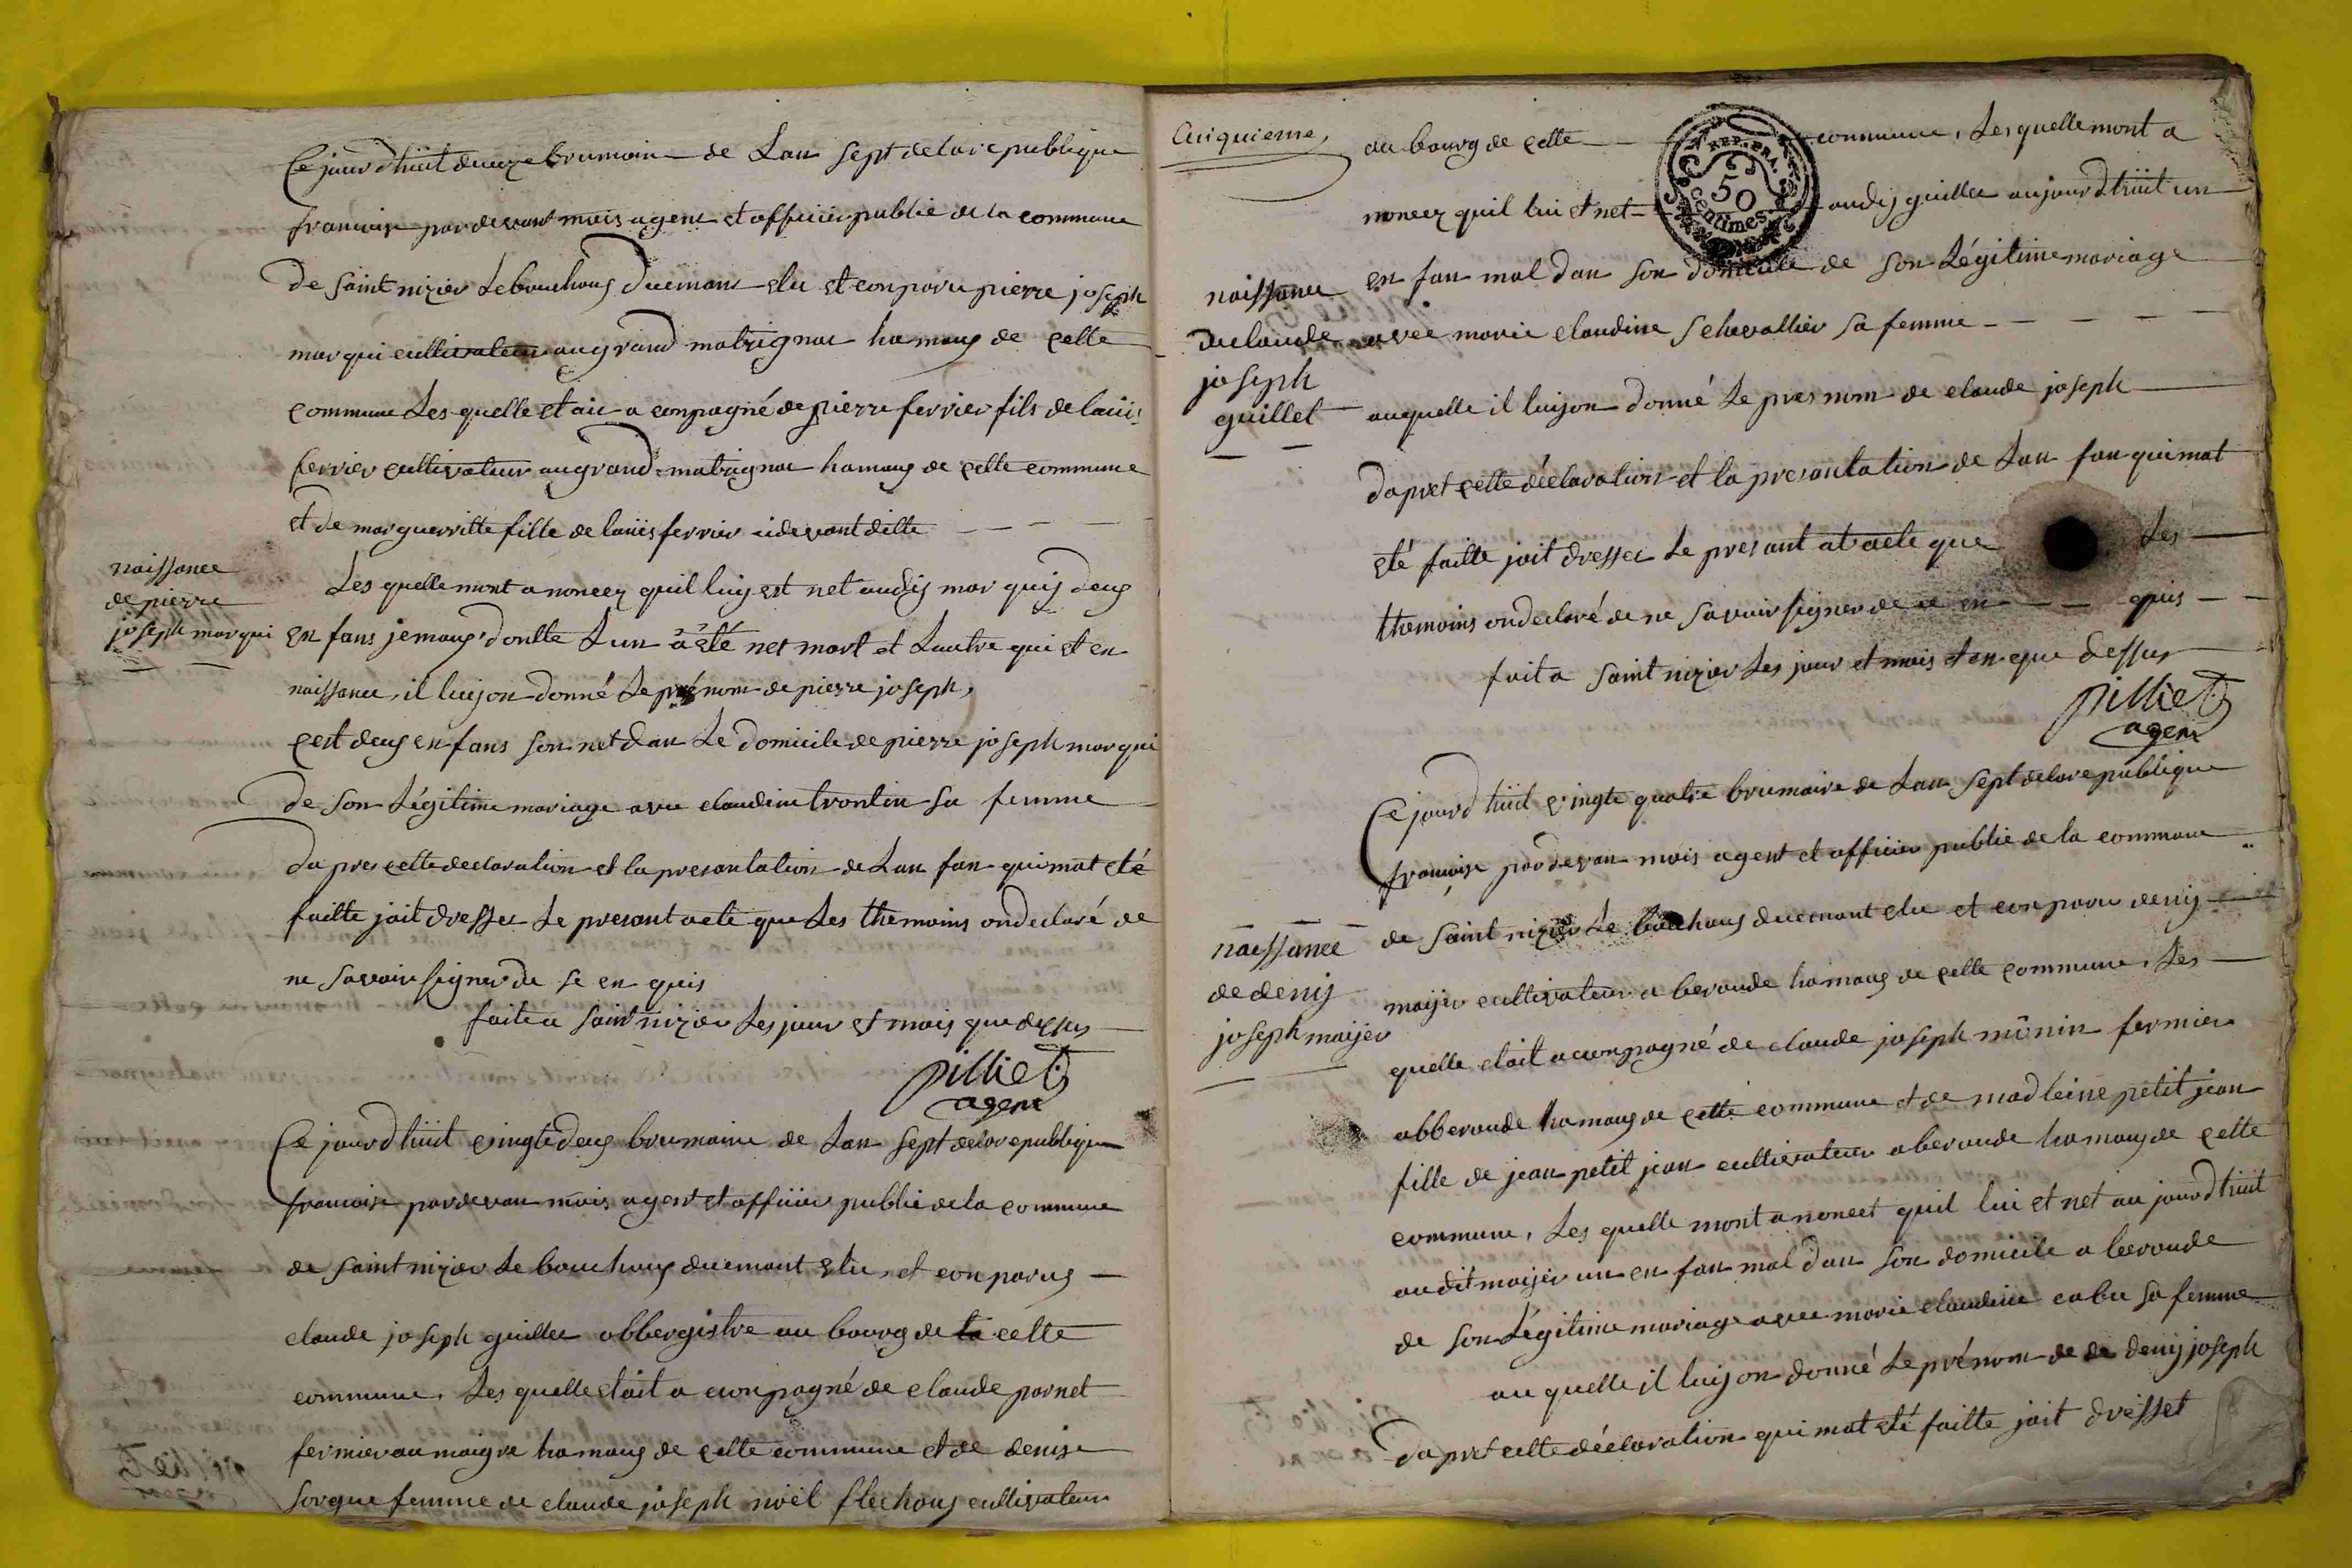 Ce jourdhüit deuze brumain de Lan sept de la republique
francoise par devant mois agent et officier public de la commune
de saint nizier Le bouchous duemans elu et conparu pierre joseph
marqui cultivateur au grand matrignac hamaus de cette
commune Les quelle etai a conpagné de pierre ferrier fils de laüis
ferrier cultivateur au grand matrignac hamaus de cette commune
et de marguerritte fille de laüis ferrier ci devant ditte
naissance
de pierre
joseph marqui
Les quelle mont a noncez quil luy est net audis marquis deus
en fans jemaus doutte Lun a été net mort et Lautre qui et en
naissance, il luij on donné Le prénom de pierre joseph,
cest deus en fans son net dan Le domicile de pierre joseph marqui
de son Légitime mariage avec claudine trontin sa femme
da pres cette declaration et la presantation de Lan fan qui mat eté
faitte jait dresser Le presant acte que Les themoins on declaré de
ne savoir signer de se en quis
fait a saint nizier Les jour et mois que dessus
pilliet
agent
Ce jourdhüit vingte deus brumaire de Lan sept de la republique
francoise par devan mois agent et officier public de la commune
de saint nizier Le bouchous duemant elu, et con parus
claude joseph guillet abbergistre au bourg de la cette
commune, Les quelle etait a conpagné de claude parnet
fermier au maigre hamaus de cette commune et de denise
sorgue femme de claude joseph noël flechous cultivateur
Cinquieme
au bourg de cette commune, Les quelle mont a
REP. FRA.
50
centimes
noncez quil lui et net audis guillet aujourdhüit un
en fan mal dan son domicile de son Légitime mariage
naissance
de claude
joseph
guillet
avec marie claudine sehevallier sa femme
auquelle il luij on donné Le pres nom de claude joseph
dapret cette déclaration et la presantation de Lan fan qui mat
eté faitte jait dresser Le presant at acte que Les
themoins on declaré de ne savoir signer de ce en quis
fait a saint nizier Les jour et mois et an que dessus
pilliet
agent
Ce jourdhüit vingte quatre brumaire de Lan sept de la republique
francoise par devan mois agent et officier public de la commune
naissance
de denis
joseph maijer
de saint nizier Le bouchous duemant elu et conparu denis
maijer cultivateur a beroude hamaus de cette commune, Les
quelle etait a conpagné de claude joseph mônin fermier
abberoude hamaus de cette commune et de madleine petit jean
fille de jean petit jean cultivateur a beroude hamaus de cette
commune, Les quelle mont a noncet quil lui et net au jourdhüit
au dit maijer un en fan mal dan son domicile a beroude
de son Légitime mariage avec marie claudine cabu sa femme
au quelle il luij on donné Le prénom de de denis joseph
da pret cette déclaration qui mat eté faitte jait dresset